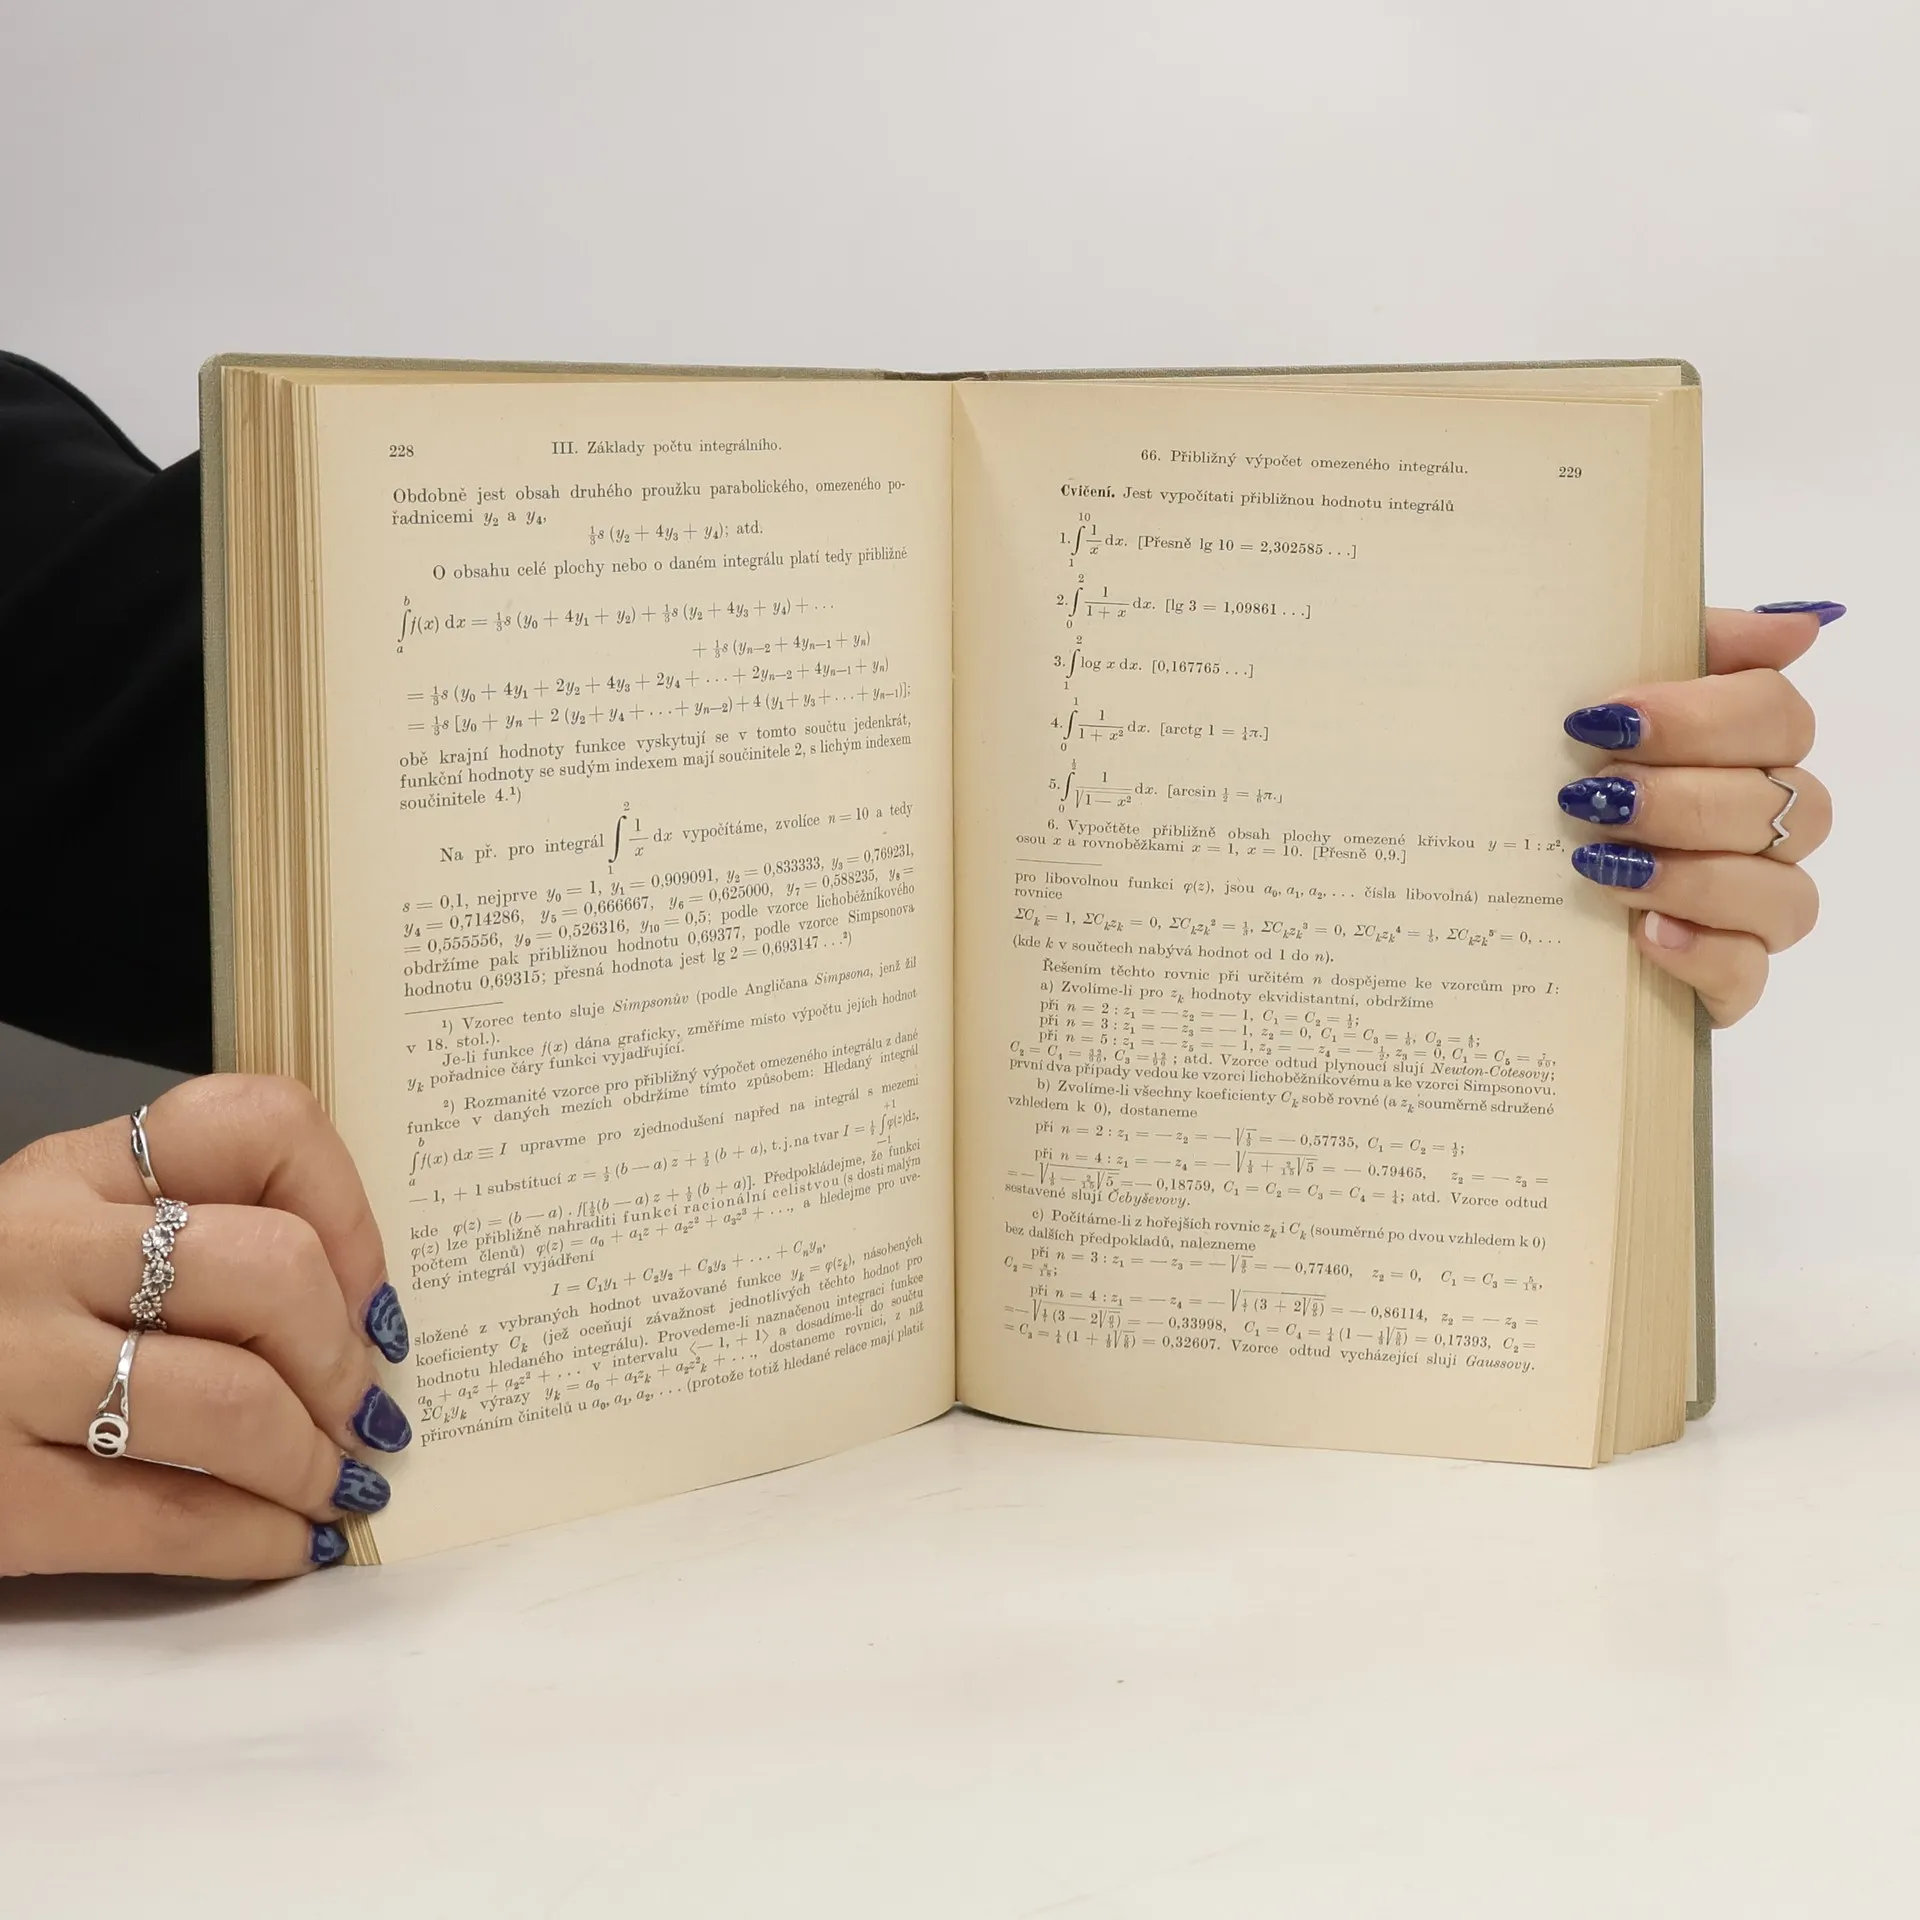 228 III. Základy počtu integrálního.
Obdobně jest obsah druhého proužku parabolického, omezeného po-
řadnicemi y₂ a y₄,
⅓s (y₂ + 4y₃ + y₄); atd.
O obsahu celé plochy nebo o daném integrálu platí tedy přibližně
∫ₐᵇ f(x) dx = ⅓s (y₀ + 4y₁ + y₂) + ⅓s (y₂ + 4y₃ + y₄) + ...
+ ⅓s (yₙ₋₂ + 4yₙ₋₁ + yₙ)
= ⅓s (y₀ + 4y₁ + 2y₂ + 4y₃ + 2y₄ + ... + 2yₙ₋₂ + 4yₙ₋₁ + yₙ)
= ⅓s [y₀ + yₙ + 2 (y₂ + y₄ + ... + yₙ₋₂) + 4 (y₁ + y₃ + ... + yₙ₋₁)];
obě krajní hodnoty funkce vyskytují se v tomto součtu jedenkrát,
funkční hodnoty se sudým indexem mají součinitele 2, s lichým indexem
součinitele 4.¹)
Na př. pro integrál ∫₁² 1/x dx vypočítáme, zvolíce n = 10 a tedy
s = 0,1, nejprve y₀ = 1, y₁ = 0,909091, y₂ = 0,833333, y₃ = 0,769231,
y₄ = 0,714286, y₅ = 0,666667, y₆ = 0,625000, y₇ = 0,588235, y₈ =
= 0,555556, y₉ = 0,526316, y₁₀ = 0,5; podle vzorce lichoběžníkového
obdržíme pak přibližnou hodnotu 0,69377, podle vzorce Simpsonova
hodnotu 0,69315; přesná hodnota jest lg 2 = 0,693147 ...²)
¹) Vzorec tento sluje Simpsonův (podle Angličana Simpsona, jenž žil
v 18. stol.).
Je-li funkce f(x) dána graficky, změříme místo výpočtu jejich hodnot
yₖ pořadnice čáry funkci vyjadřující.
²) Rozmanité vzorce pro přibližný výpočet omezeného integrálu z dané
funkce v daných mezích obdržíme tímto způsobem: Hledaný integrál
∫ₐᵇ f(x) dx ≡ I upravme pro zjednodušení napřed na integrál s mezemi
— 1, + 1 substitucí x = ½ (b — a) z + ½ (b + a), t. j. na tvar I = ½ ∫₋₁⁺¹ φ(z)dz,
kde φ(z) = (b — a) . f[½(b — a) z + ½ (b + a)]. Předpokládejme, že funkci
φ(z) lze přibližně nahraditi funkcí racionální celistvou (s dosti malým
počtem členů) φ(z) = a₀ + a₁z + a₂z² + a₃z³ + ..., a hledejme pro uve-
dený integrál vyjádření
I = C₁y₁ + C₂y₂ + C₃y₃ + ... + Cₙyₙ,
složené z vybraných hodnot uvažované funkce yₖ = φ(zₖ), násobených
koeficienty Cₖ (jež oceňují závažnost jednotlivých těchto hodnot pro
hodnotu hledaného integrálu). Provedeme-li naznačenou integraci funkce
a₀ + a₁z + a₂z² + ... v intervalu ⟨— 1, + 1⟩ a dosadíme-li do součtu
ΣCₖyₖ výrazy yₖ = a₀ + a₁zₖ + a₂zₖ² + ..., dostaneme rovnici, z níž
přirovnáním činitelů u a₀, a₁, a₂, ... (protože totiž hledané relace mají platit
66. Přibližný výpočet omezeného integrálu. 229
Cvičení. Jest vypočítati přibližnou hodnotu integrálů
1. ∫₁¹⁰ 1/x dx. [Přesně lg 10 = 2,302585 ...]
2. ∫₀² 1/(1 + x) dx. [lg 3 = 1,09861 ...]
3. ∫₁² log x dx. [0,167765 ...]
4. ∫₀¹ 1/(1 + x²) dx. [arctg 1 = ¼π.]
5. ∫₀^½ 1/√(1 — x²) dx. [arcsin ½ = ⅙π.]
6. Vypočtěte přibližně obsah plochy omezené křivkou y = 1 : x²,
osou x a rovnoběžkami x = 1, x = 10. [Přesně 0,9.]
pro libovolnou funkci φ(z), jsou a₀, a₁, a₂, ... čísla libovolná) nalezneme
rovnice
ΣCₖ = 1, ΣCₖzₖ = 0, ΣCₖzₖ² = ⅓, ΣCₖzₖ³ = 0, ΣCₖzₖ⁴ = ⅕, ΣCₖzₖ⁵ = 0, ...
(kde k v součtech nabývá hodnot od 1 do n).
Řešením těchto rovnic při určitém n dospějeme ke vzorcům pro I:
a) Zvolíme-li pro zₖ hodnoty ekvidistantní, obdržíme
při n = 2 : z₁ = — z₂ = — 1, C₁ = C₂ = ½;
při n = 3 : z₁ = — z₃ = — 1, z₂ = 0, C₁ = C₃ = ⅙, C₂ = 4/6;
při n = 5 : z₁ = — z₅ = — 1, z₂ = — z₄ = — ½, z₃ = 0, C₁ = C₅ = 7/90,
C₂ = C₄ = 32/90, C₃ = 12/90; atd. Vzorce odtud plynoucí slují Newton-Cotesovy;
první dva případy vedou ke vzorci lichoběžníkovému a ke vzorci Simpsonovu.
b) Zvolíme-li všechny koeficienty Cₖ sobě rovné (a zₖ souměrně sdružené
vzhledem k 0), dostaneme
při n = 2 : z₁ = — z₂ = — √⅓ = — 0,57735, C₁ = C₂ = ½;
při n = 4 : z₁ = — z₄ = — √(⅓ + 2/15 √5) = — 0.79465, z₂ = — z₃ =
= — √(⅓ — 2/15 √5) = — 0,18759, C₁ = C₂ = C₃ = C₄ = ¼; atd. Vzorce odtud
sestavené slují Čebyševovy.
c) Počítáme-li z hořejších rovnic zₖ i Cₖ (souměrné po dvou vzhledem k 0)
bez dalších předpokladů, nalezneme
při n = 3 : z₁ = — z₃ = — √⅗ = — 0,77460, z₂ = 0, C₁ = C₃ = 5/18,
C₂ = 8/18;
při n = 4 : z₁ = — z₄ = — √(1/7 (3 + 2√(6/5))) = — 0,86114, z₂ = — z₃ =
= — √(1/7 (3 — 2√(6/5))) = — 0,33998, C₁ = C₄ = ¼ (1 — ⅓√(5/6)) = 0,17393, C₂ =
= C₃ = ¼ (1 + ⅓√(5/6)) = 0,32607. Vzorce odtud vycházející slují Gaussovy.